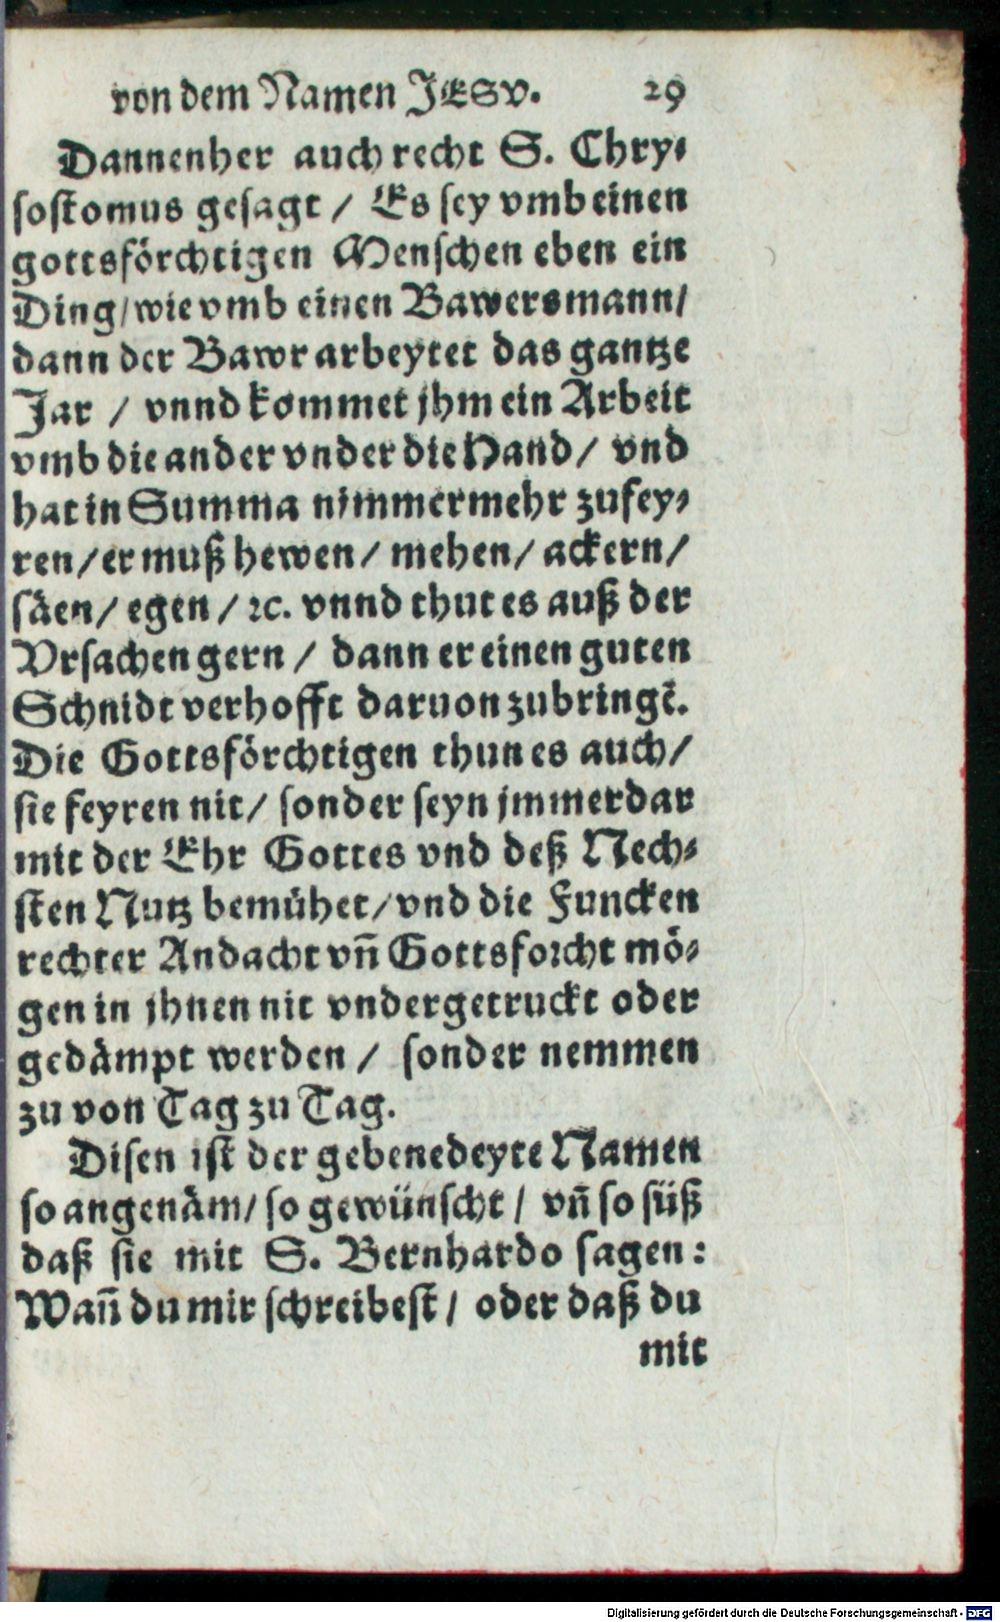 von dem Namen JESV. 29
Dannenher auch recht S. Chry⸗
sostomus gesagt / Es sey vmb einen
gottsförchtigen Menschen eben ein
Ding / wie vmb einen Bawersmann /
dann der Bawr arbeytet das gantze
Jar / vnnd kommet jhm ein Arbeit
vmb die ander vnder die Hand / vnd
hat in Summa nimmermehr zufey⸗
ren / er muß hewen / mehen / ackern /
säen / egen / ꝛc. vnnd thut es auß der
Vrsachen gern / dann er einen guten
Schnidt verhofft daruon zubringẽ.
Die Gottsförchtigen thun es auch /
sie feyren nit / sonder seyn jmmerdar
mit der Ehr Gottes vnd deß Nech⸗
sten Nutz bemühet / vnd die Funcken
rechter Andacht vñ Gottsforcht mö⸗
gen in jhnen nit vndergetruckt oder
gedämpt werden / sonder nemmen
zu von Tag zu Tag.
Disen ist der gebenedeyte Namen
so angenäm / so gewünscht / vñ so süß
daß sie mit S. Bernhardo sagen:
Wañ du mir schreibest / oder daß du
mit
Digitalisierung gefördert durch die Deutsche Forschungsgemeinschaft - DFG